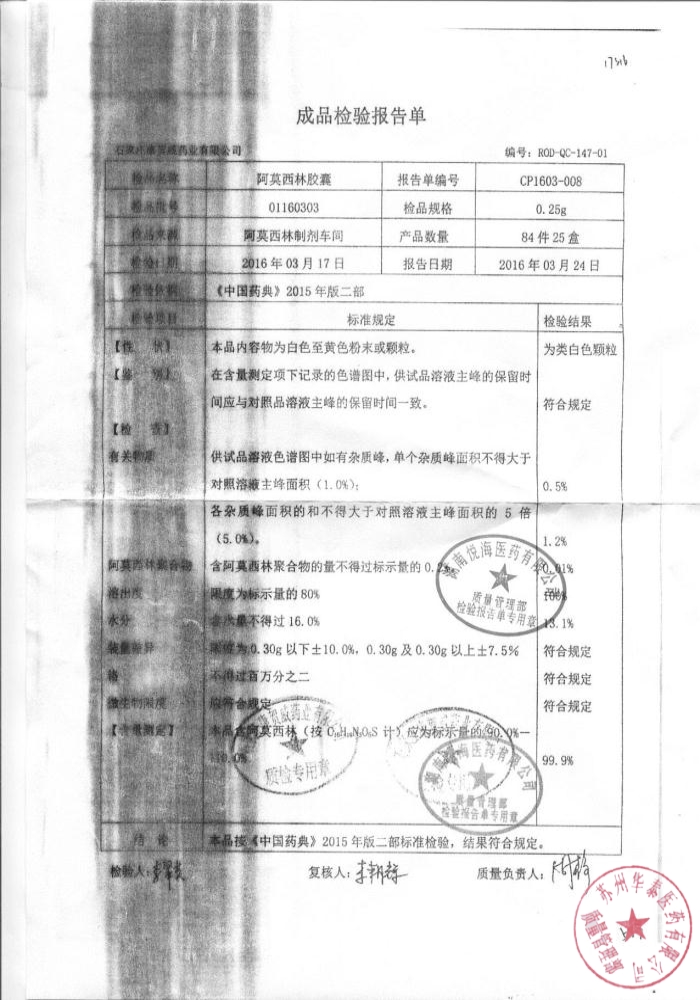 成品检验报告单
编号：ROD-QC-147-01
检品名称 阿莫西林胶囊 报告单编号 CP1603-008
检品批号 01160303 检品规格 0.25g
检品来源 阿莫西林制剂车间 产品数量 84件25盒
检验日期 2016年03月17日 报告日期 2016年03月24日
检验依据 《中国药典》2015年版二部
检验项目 标准规定 检验结果
【性 状】 本品内容物为白色至黄色粉末或颗粒。 为类白色颗粒
【鉴 别】 在含量测定项下记录的色谱图中，供试品溶液主峰的保留时
间应与对照品溶液主峰的保留时间一致。 符合规定
【检 查】
有关物质 供试品溶液色谱图中如有杂质峰，单个杂质峰面积不得大于
对照溶液主峰面积（1.0%）； 0.5%
各杂质峰面积的和不得大于对照溶液主峰面积的 5 倍
（5.0%）。 1.2%
阿莫西林聚合物 含阿莫西林聚合物的量不得过标示量的 0.01%
溶出度 限度为标示量的80% 100%
水分 含水量不得过16.0% 13.1%
装量差异 限度为0.30g以下±10.0%，0.30g及0.30g以上±7.5% 符合规定
铬 不得过百万分之二 符合规定
微生物限度 应符合规定 符合规定
【含量测定】 本品含阿莫西林（按 计）应为标示量的90.0%—
110.0% 99.9%
结 论 本品按《中国药典》2015年版二部标准检验，结果符合规定。
检验人： 复核人： 质量负责人：
悦海医药有限公司
质量管理部
检验报告单专用章
质检专用章
质量管理部
检验报告单专用章
苏州华泰医药有限公司